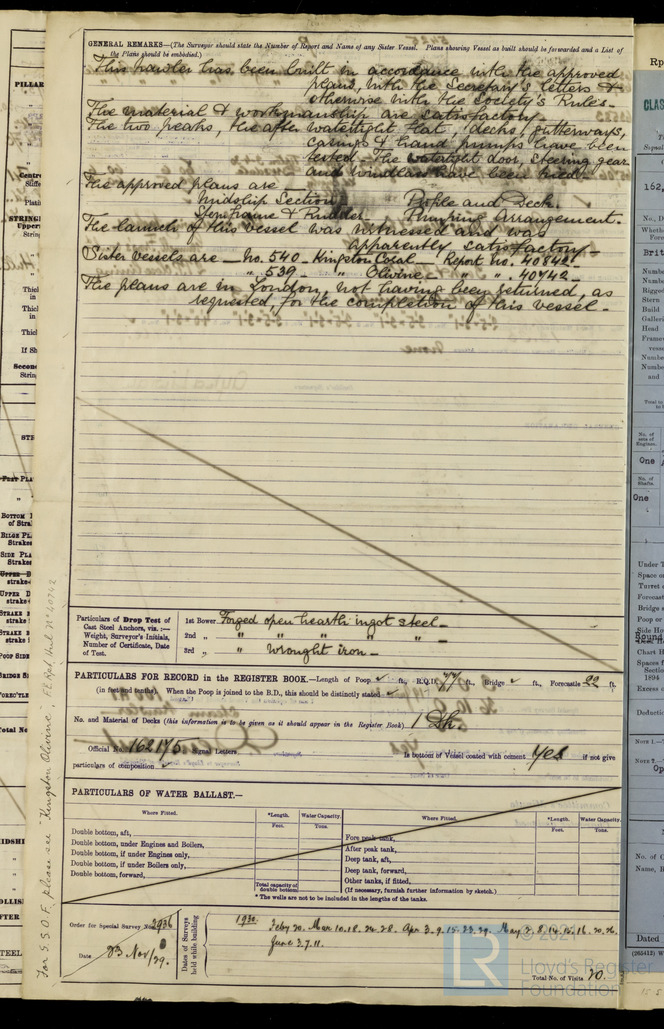 GENERAL REMARKS—(The Surveyor should state the Number of Report and Name of any Sister Vessel. Plans showing Vessel as built should be forwarded and a List of
the Plans should be embodied.)
This trawler has been built in accordance with the approved
plans, with the Secretary's letters &
otherwise with the Society's Rules.
The material & workmanship are satisfactory.
The two peaks, the after watertight flat, decks, gutterways,
casings & hand pumps have been
tested. The watertight door, steering gear
and windlass have been tried.
The approved plans are
Midship Section Profile and Deck.
Sternframe & Rudder Pumping Arrangement.
The launch of this vessel was witnessed and was
apparently satisfactory—
Sister vessels are — No. 540 — Kingston Coral — Report No. 40842—
" 539 — " Olivine — " " 40742—
The plans are in London, not having been returned, as
requested, for the completion of this vessel.
Particulars of Drop Test of
Cast Steel Anchors, viz.:—
Weight, Surveyor's Initials,
Number of Certificate, Date
of Test.
1st Bower Forged open hearth ingot steel—
2nd " " " " " " —
3rd " " Wrought iron—
PARTICULARS FOR RECORD in the REGISTER BOOK.—Length of Poop ✓ ft., R.Q.D. ft., Bridge ✓ ft., Forecastle 22 ft.
(in feet and tenths) When the Poop is joined to the B.D., this should be distinctly stated ✓
No. and Material of Decks (this information is to be given as it should appear in the Register Book) 1 Dk.
Official No. 162145 Signal Letters Is bottom of Vessel coated with cement Yes if not give
particulars of composition ✓
PARTICULARS OF WATER BALLAST.—
Where Fitted. *Length. Water Capacity. Where Fitted. *Length. Water Capacity.
Feet. Tons. Feet. Tons.
Double bottom, aft, Fore peak tank,
Double bottom, under Engines and Boilers, After peak tank,
Double bottom, if under Engines only, Deep tank, aft,
Double bottom, if under Boilers only, Deep tank, forward,
Double bottom, forward, Other tanks, if fitted,
Total capacity of
double bottom (If necessary, furnish further information by sketch.)
* The wells are not to be included in the lengths of the tanks.
Order for Special Survey No. 2936
Date 23 Nov/29.
Dates of Surveys
held while building
1930. Feby 20. Mar 10. 18. 24. 28. Apr 3. 9. 15. 23. 29. May 2. 8. 14. 15. 16. 20. 26.
June 3. 7. 11.
Total No. of Visits 20.
For S.S.O.F. please see "Kingston Olivine", F.E. Rpt. Hul. No 40742
© 2021
LR
Lloyd's Register
Foundation